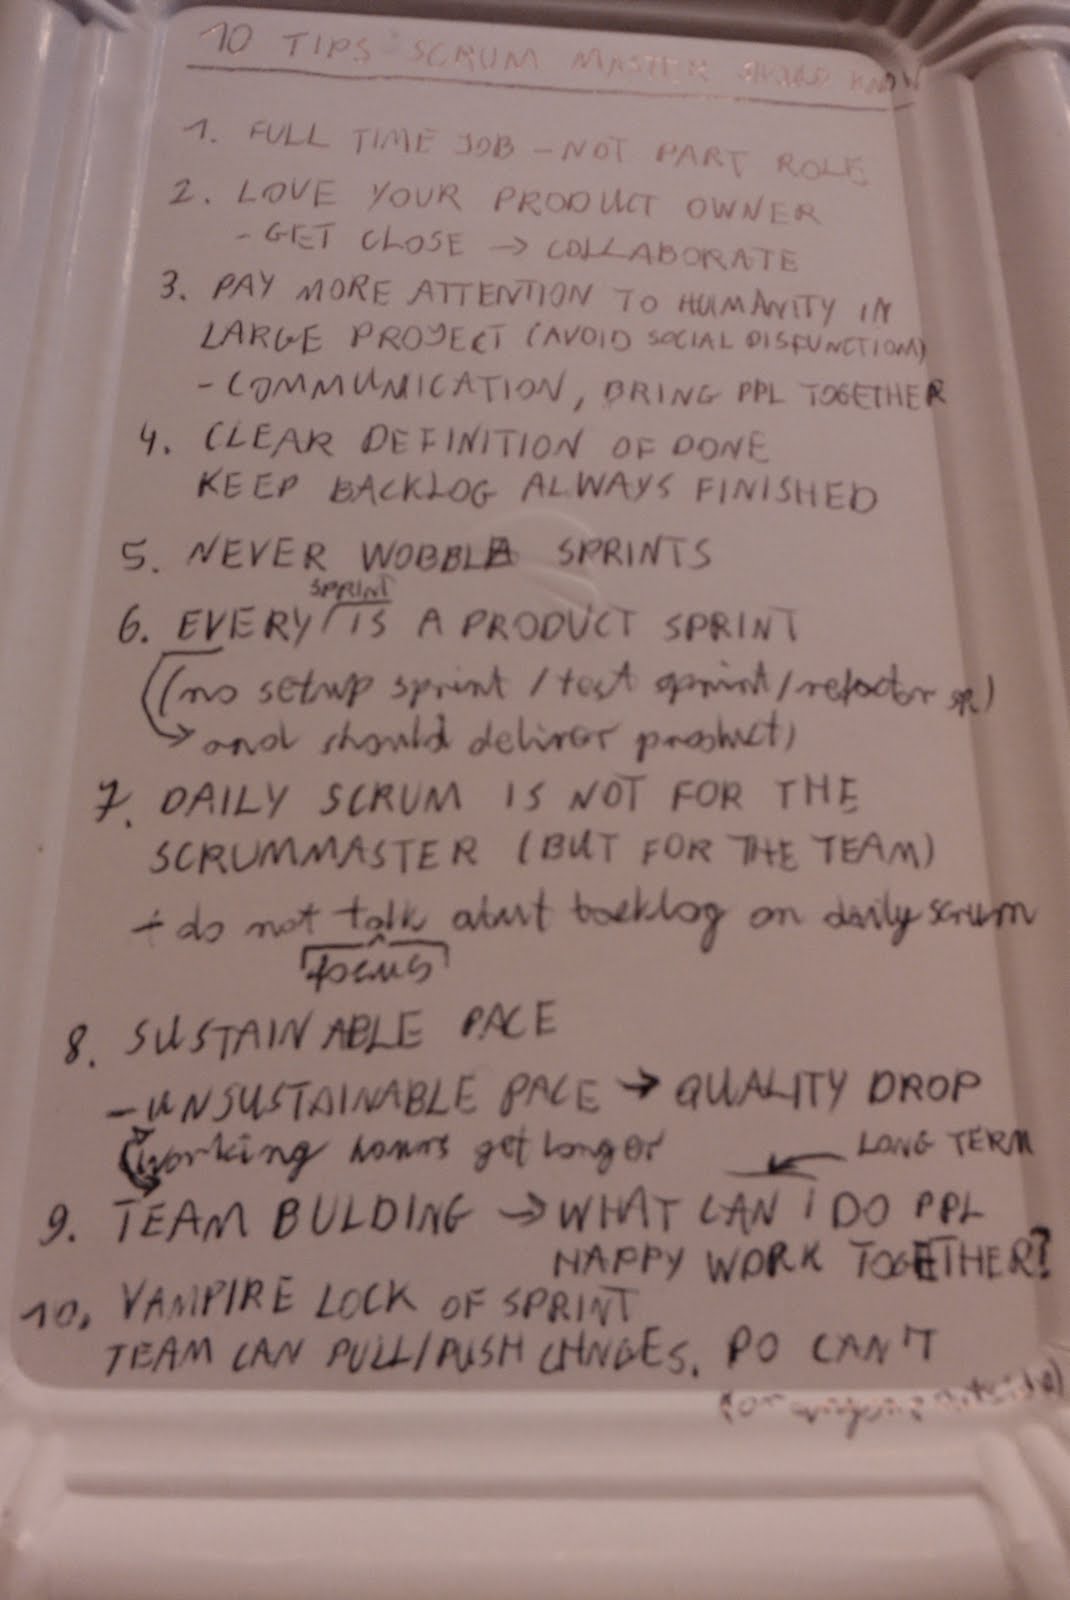 10 TIPS SCRUM MASTER SHOULD KNOW
1. FULL TIME JOB - NOT PART ROLE
2. LOVE YOUR PRODUCT OWNER
- GET CLOSE → COLLABORATE
3. PAY MORE ATTENTION TO HUMANITY IN
LARGE PROJECT (AVOID SOCIAL DISFUNCTION)
- COMMUNICATION, BRING PPL TOGETHER
4. CLEAR DEFINITION OF DONE
KEEP BACKLOG ALWAYS FINISHED
5. NEVER WOBBLE SPRINTS
SPRINT
6. EVERY IS A PRODUCT SPRINT
(no setup sprint / test sprint / refactor sp.)
→ and should deliver product)
7. DAILY SCRUM IS NOT FOR THE
SCRUMMASTER (BUT FOR THE TEAM)
+ do not talk about backlog on daily scrum
focus
8. SUSTAINABLE PACE
- UNSUSTAINABLE PACE → QUALITY DROP
working hours get longer
LONG TERM
9. TEAM BULDING → WHAT CAN I DO PPL
HAPPY WORK TOGETHER?
10. VAMPIRE LOCK OF SPRINT
TEAM CAN PULL/PUSH CHNGES. PO CAN'T
(or anyone outside)